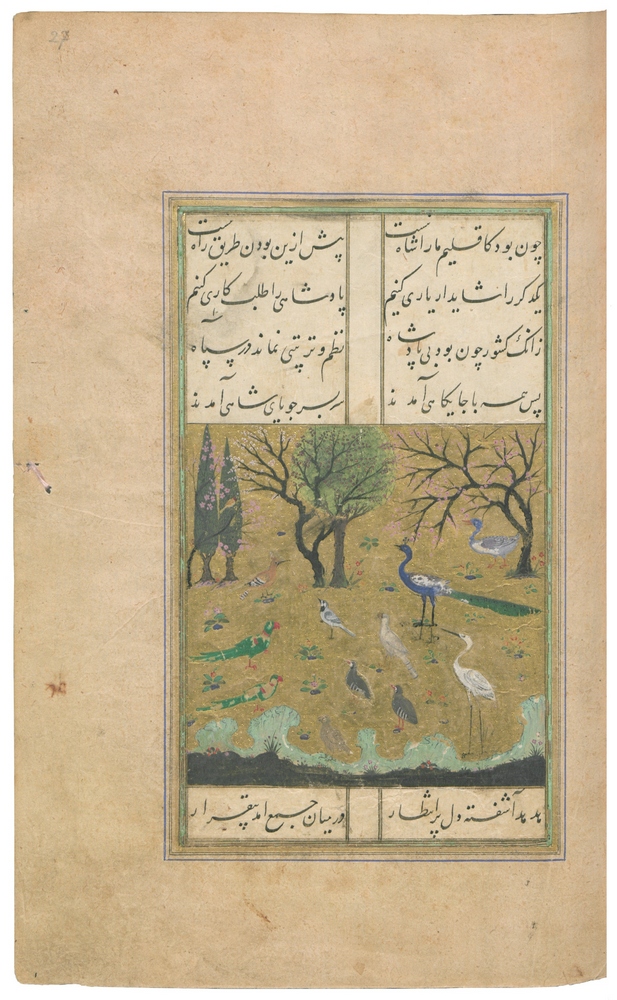 چون بود کاقلیم ما را شاه نیست پیش ازین بودن طریق راه نیست
یکدگر را شاید ار یاری کنیم پادشاهی را طلب کاری کنیم
زانک کشور چون بود بی پادشاه نظم و ترتیبی نماند در سپاه
پس همه با جایکاهی آمدند سر بسر جویای شاهی آمدند
هدهد آشفته دل پر انتظار در میان جمع آمد بیقرار